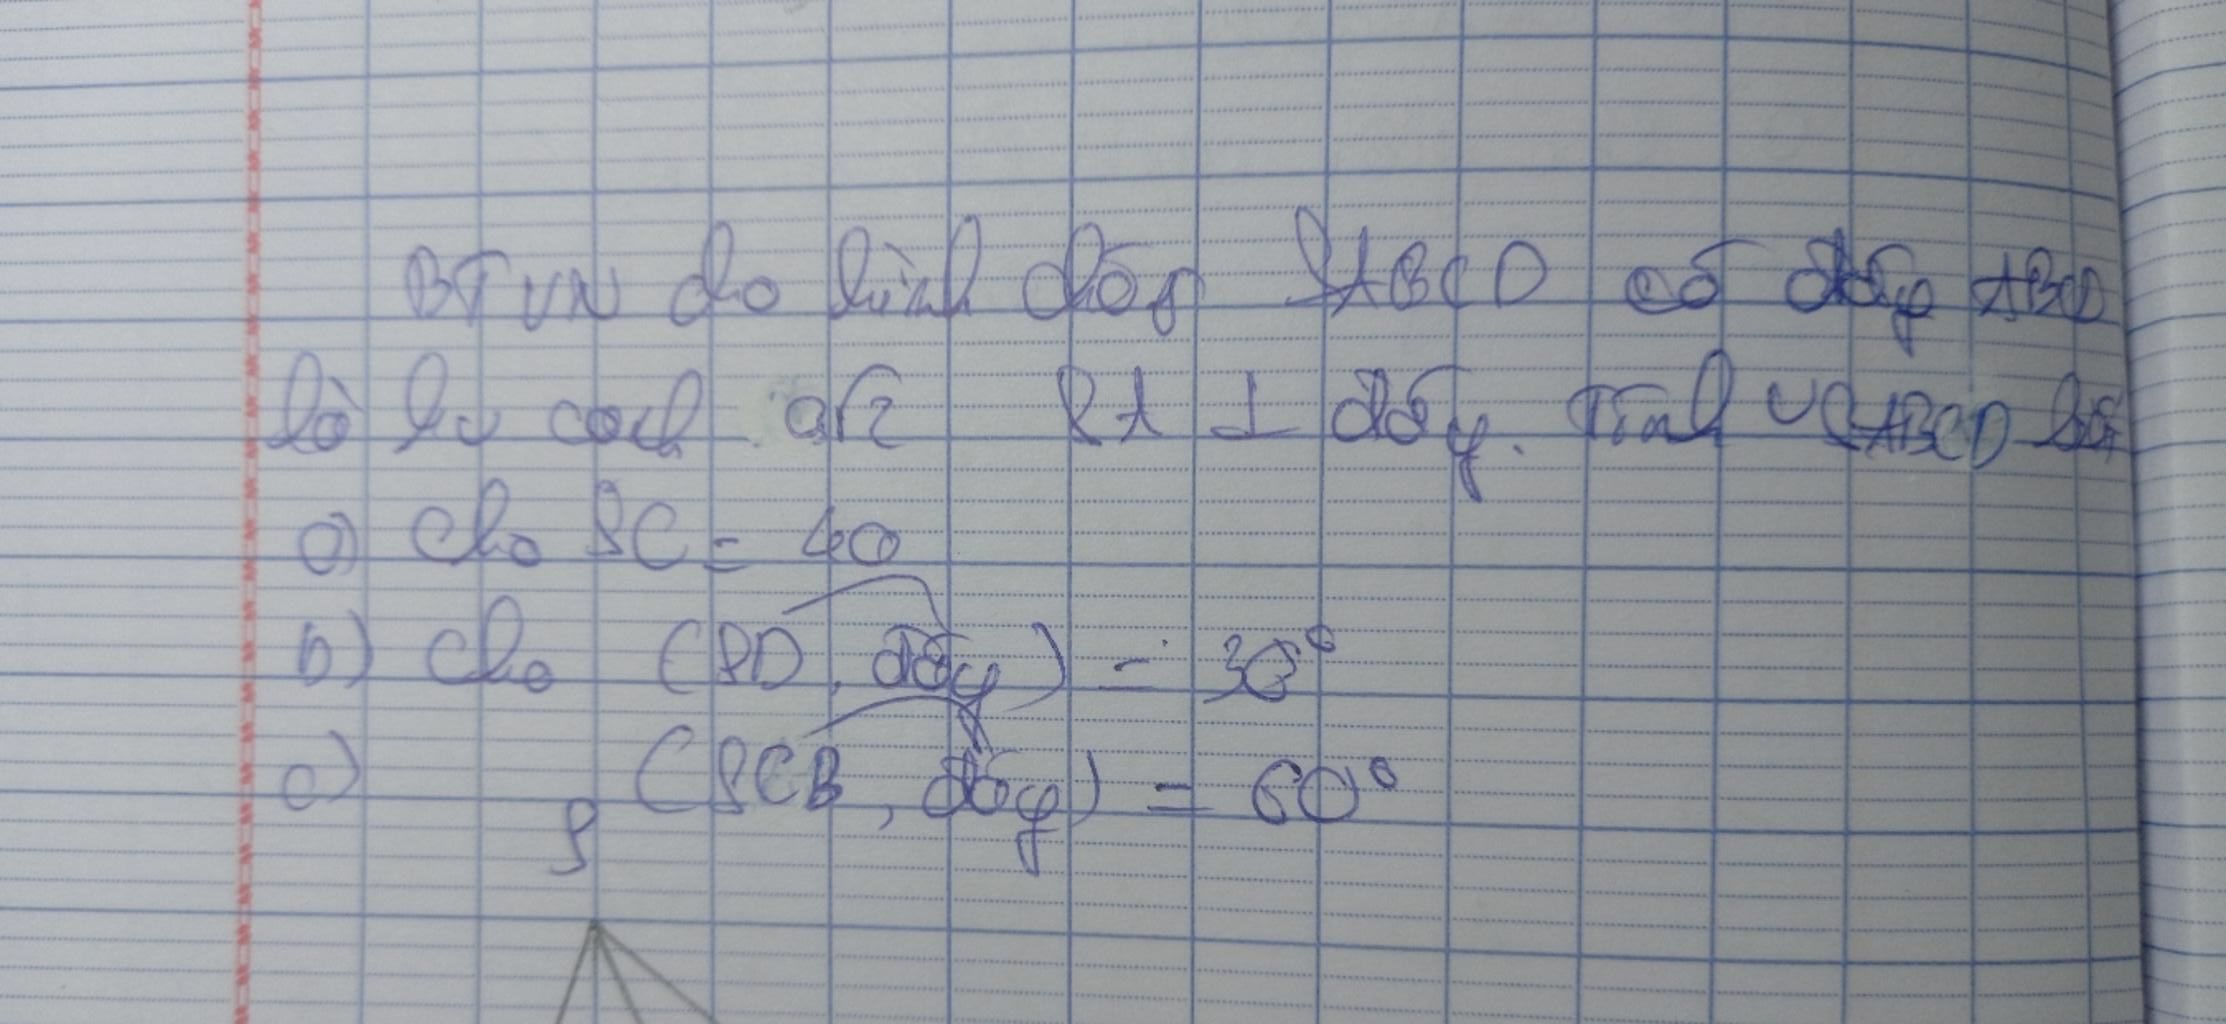 BTVN cho hình chóp SABCD có đáy ABCD
là hv cạch a√2 SA ⊥ đáy. Tính VSABCD biết
a) Cho SC = 4a
b) Cho (SD, đáy) = 30°
c) (SCB, đáy) = 60°
S